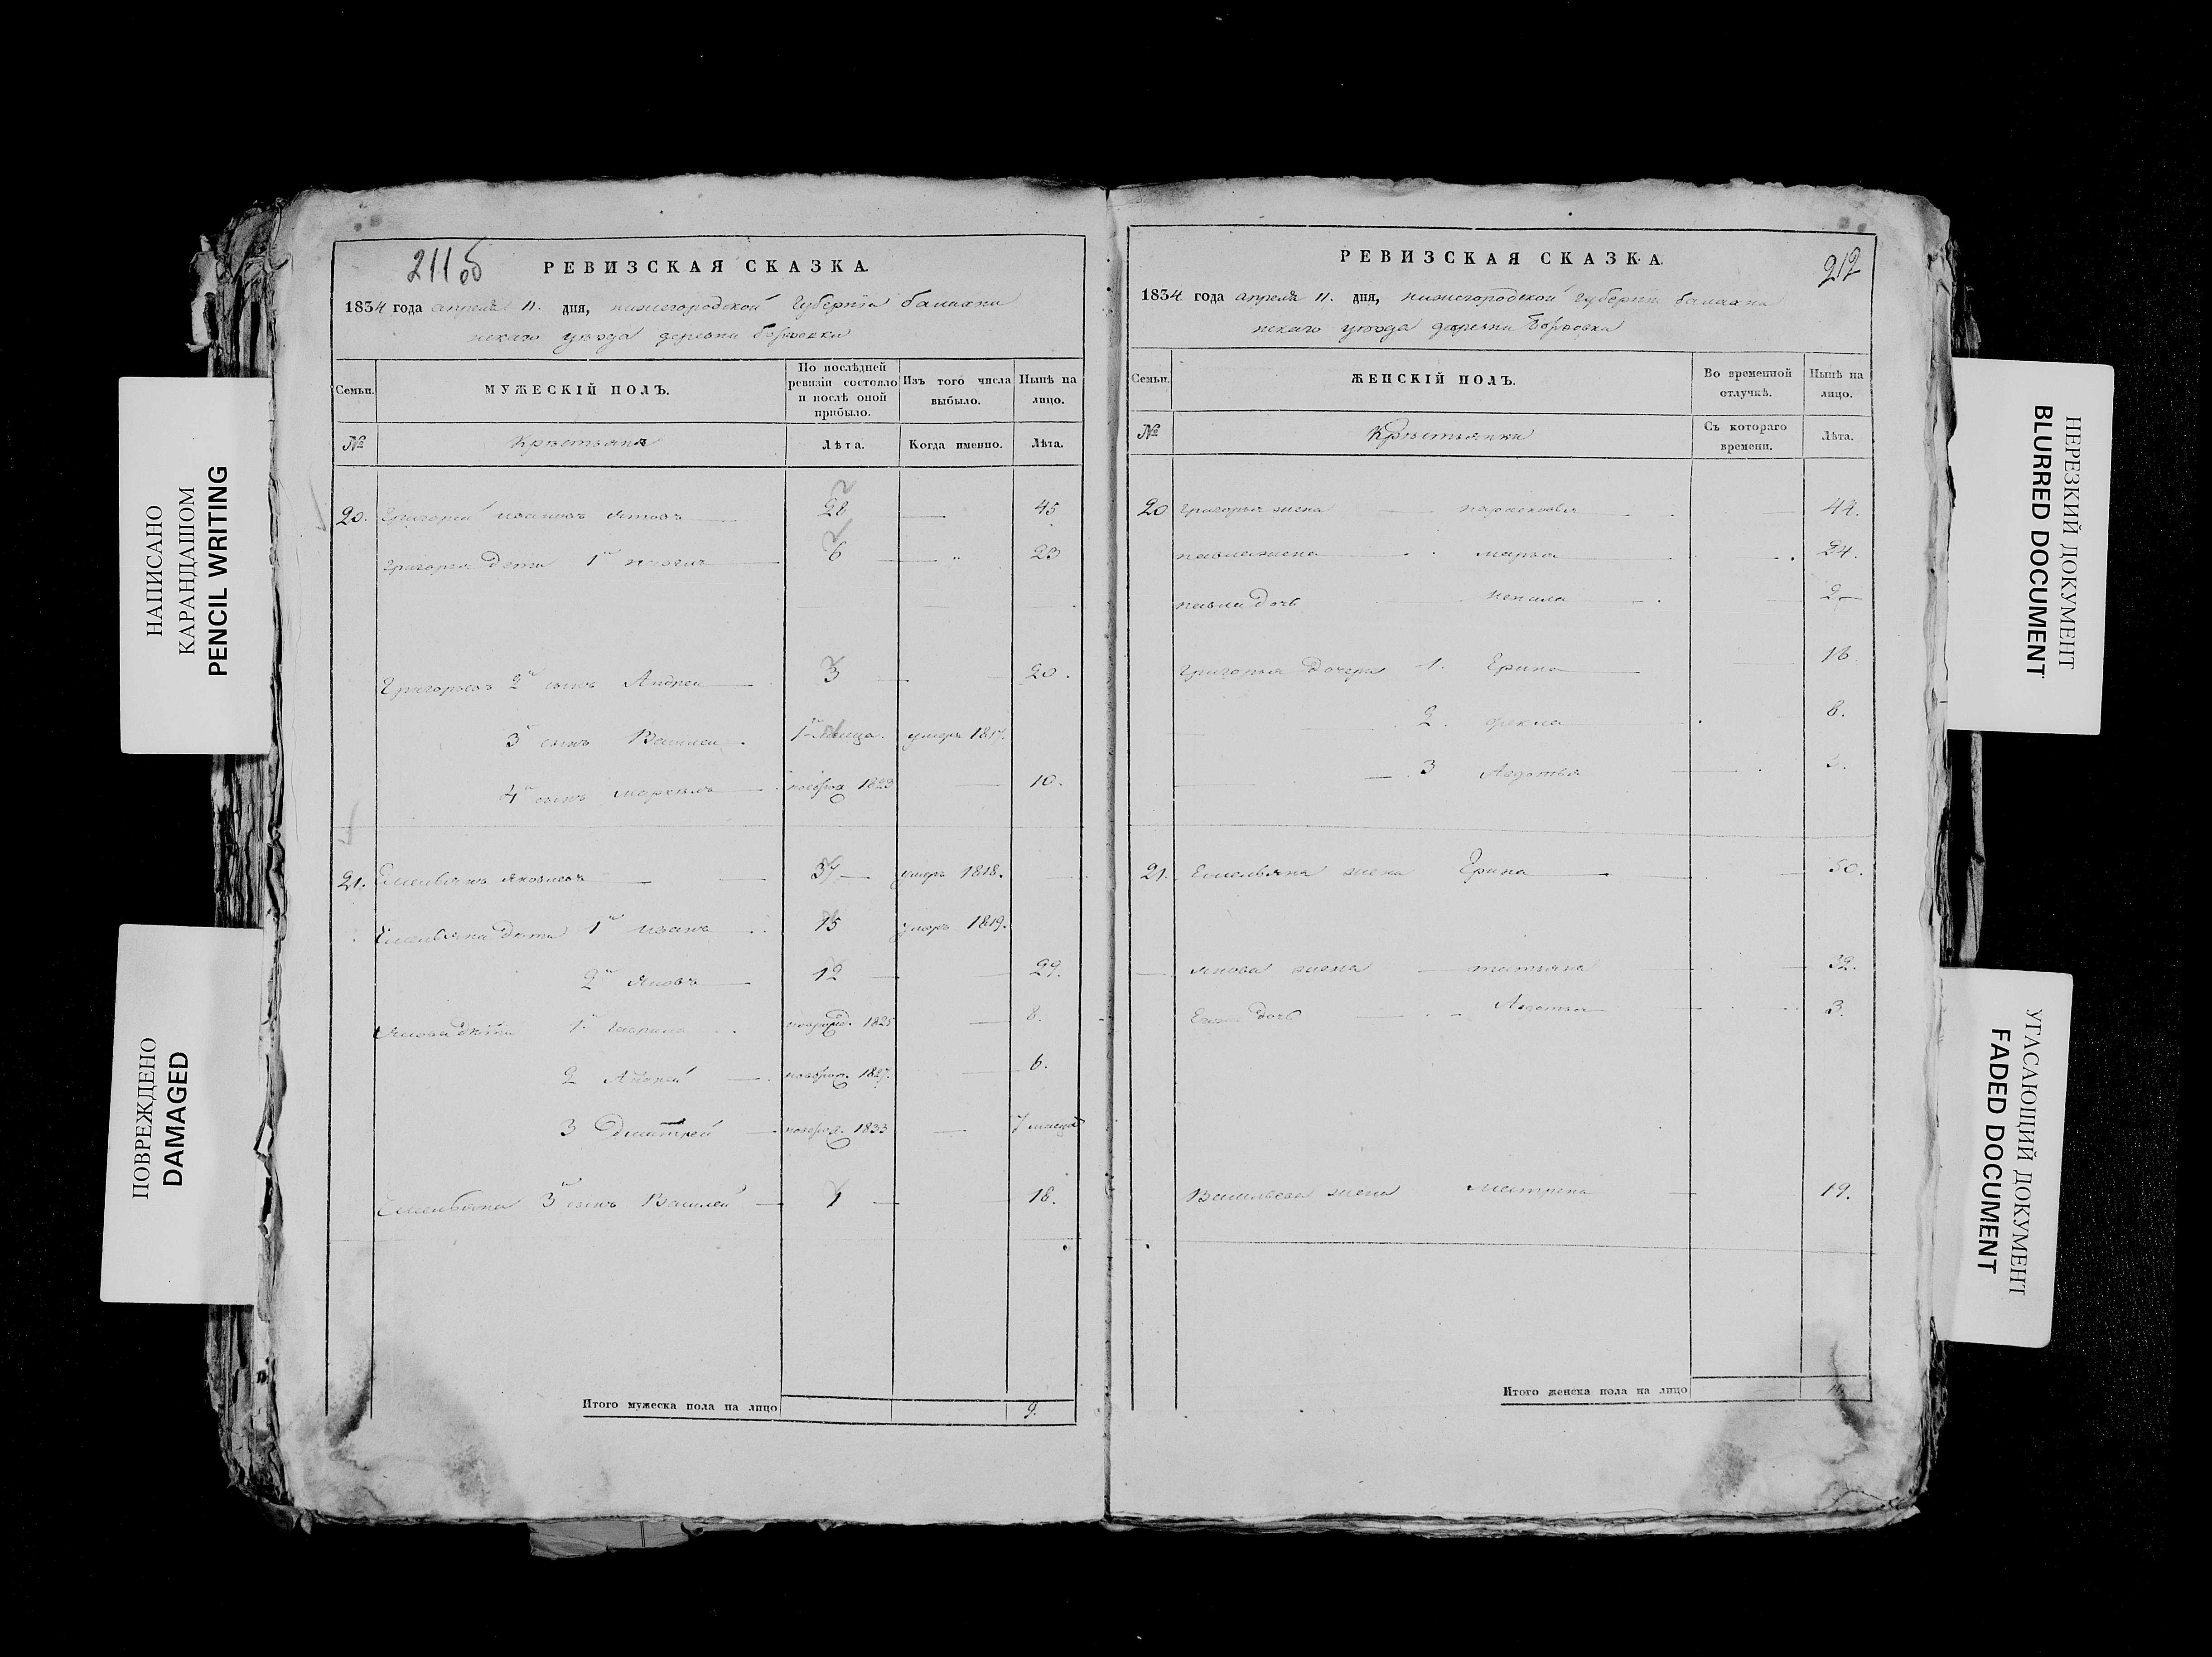 НАПИСАНО
КАРАНДАШОМ
PENCIL WRITING
ПОВРЕЖДЕНО
DAMAGED
211об
РЕВИЗСКАЯ СКАЗКА.
1834 года апреля 11. дня, нижегородской губернии балахни
нскаго уезда деревни
Семьи.
МУЖЕСКІЙ ПОЛЪ.
По послѣдней ревизіи состояло и послѣ оной прибыло.
Изъ того числа выбыло.
Нынѣ на лицо.
№
Крестьяня
Лѣта.
Когда именно.
Лѣта.
20. Григорей ивановъ 28 45
Григорья дети 1й павелъ 6 23
Григорьевъ 2й сынъ Андреи 3 20.
3й сынъ Василеи. умеръ 1817.
4й сынъ 1823 10.
21. Емельянъ яковлевъ 37 умеръ 1818.
Емельяна дети 1й иванъ 15 умеръ 1819.
2й яковъ 12 29.
Якова дѣти 1й гаврила 1825 8.
2 Андрей 1827. 6.
3 Дмитрей 1833 7
Емельяна 3й сынъ Василей 1 18.
Итого мужеска пола на лицо 9.
212
РЕВИЗСКАЯ СКАЗКА.
1834 года апреля 11. дня, нижегородской губернии балахни
нскаго уезда деревни
Семьи.
ЖЕНСКІЙ ПОЛЪ.
Во временной отлучкѣ.
Нынѣ на лицо.
№
Крестьянки
Съ котораго времени.
Лѣта.
20 Григорья жена парасковья 44.
павла жена марья 24.
павла дочь 2
Григорья дочери 1. Ерина 16
2. фекла 8.
3 Авдотья 3.
21. Емельяна жена Ерина 50.
якова жена татьяна 32.
дочь Авдотья 3.
Васильева жена матрена 19.
Итого женска пола на лицо 10
НЕРЕЗКИЙ ДОКУМЕНТ
BLURRED DOCUMENT
УГАСАЮЩИЙ ДОКУМЕНТ
FADED DOCUMENT